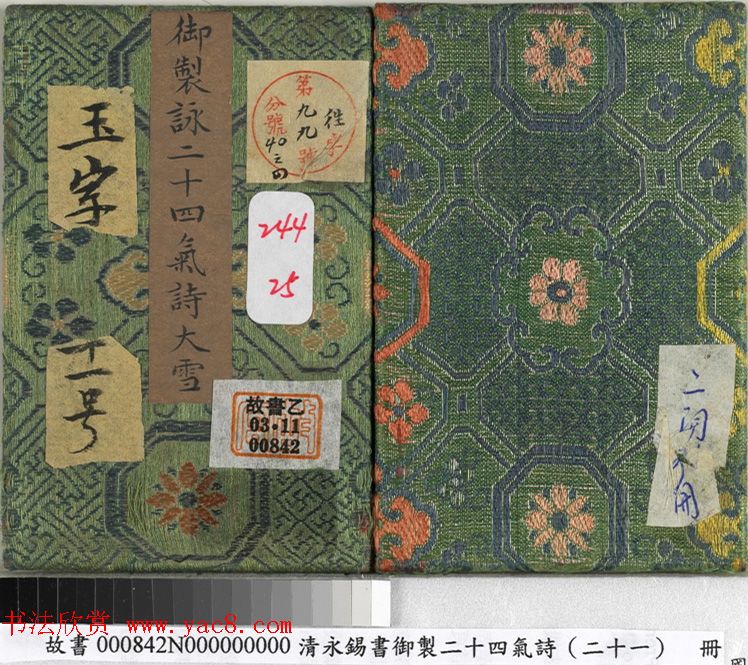 御製詠二十四氣詩大雪
玉字
十一号
往字
第九九號
分號40之四
244
25
故書乙
03·11
00842
书法欣赏 www.yac8.com
故書000842N000000000 清永錫書御製二十四氣詩（二十一） 冊